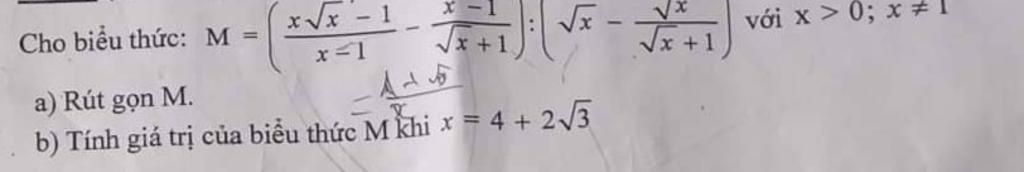 Cho biểu thức: M = ( (x√x - 1)/(x - 1) - (x - 1)/(√x + 1) ) : ( √x - √x/(√x + 1) ) với x > 0; x ≠ 1
a) Rút gọn M.
b) Tính giá trị của biểu thức M khi x = 4 + 2√3